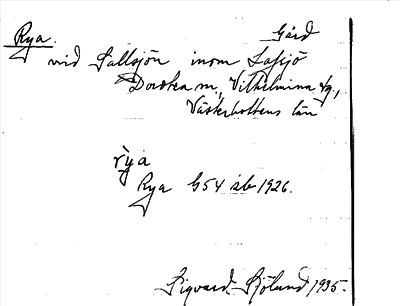 Rya. Gård
vid Sallsjön inom Lafsjö
Dorotea m., Vilhelmina tg.,
Västerbottens län
rỳa
Rya G54 slb 1926.
Sigvard Sjölund 1935.